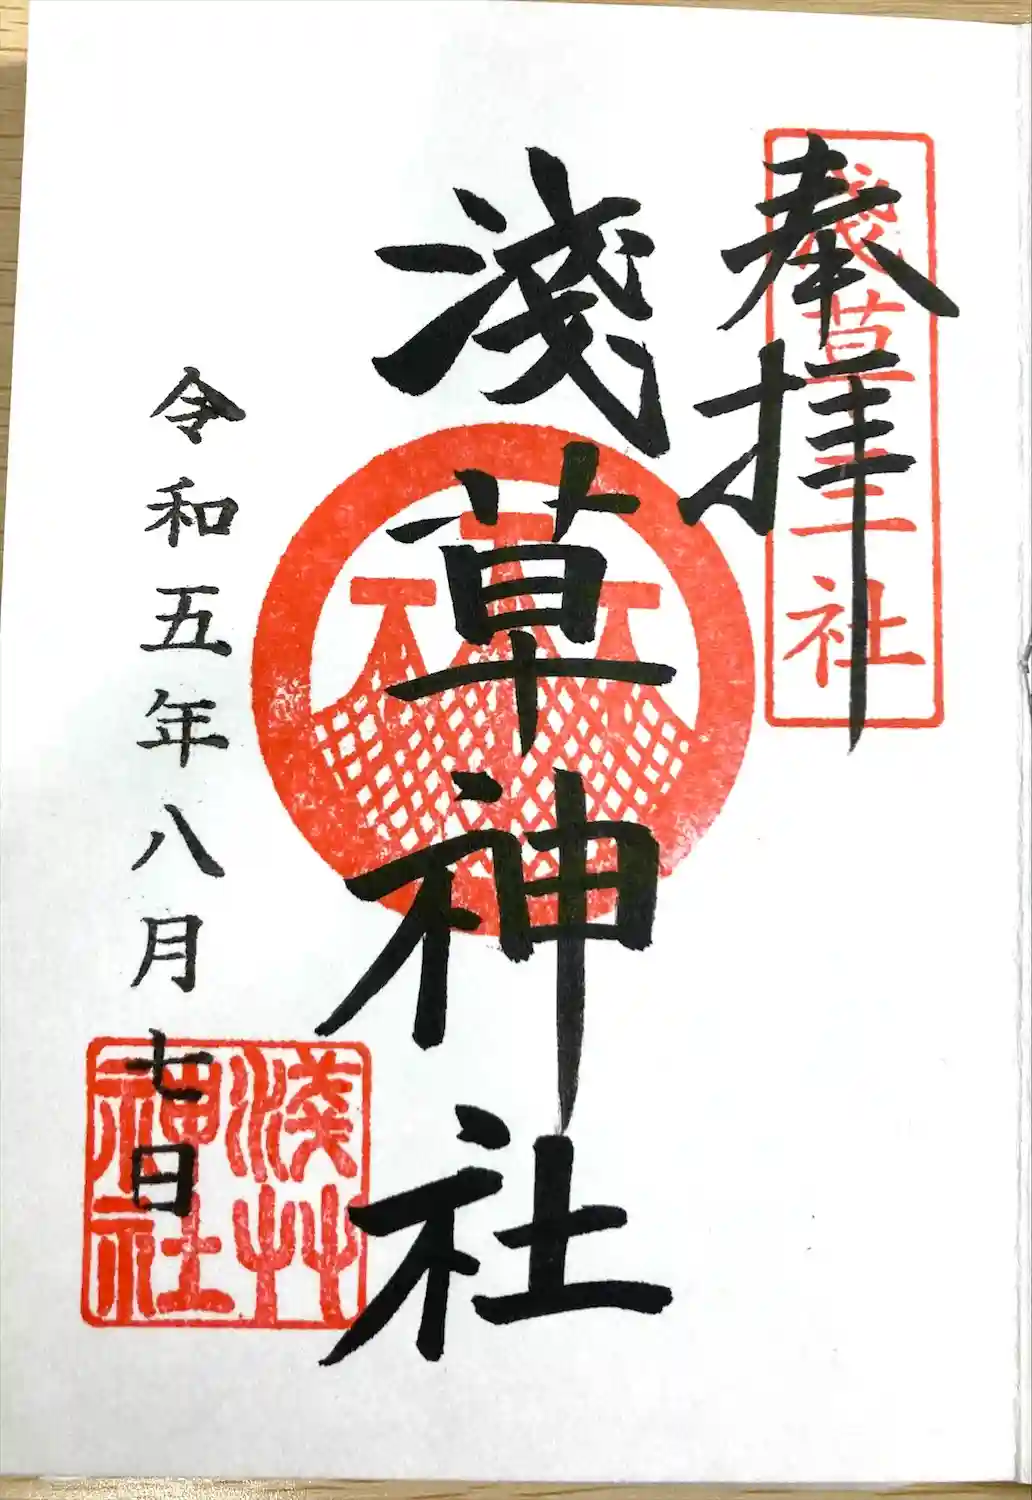 奉拝
淺草三社
淺草神社
令和五年八月七日
淺艸神社